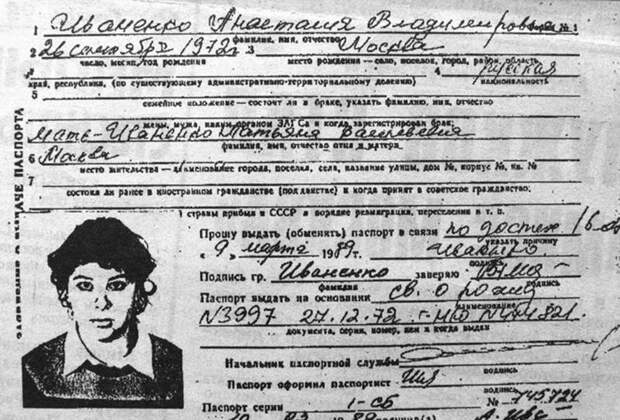 1 Иваненко Анастасия Владимировна
Форма № 1
фамилия, имя, отчество
2 26 сентября 1972 г. 3 Москва
число, месяц, год рождения место рождения — село, поселок, город, район, область
4 русская
край, республика, (по существующему административно-территориальному делению) национальность
5
семейное положение — состоит ли в браке, указать фамилию, имя, отчество
жены, мужа, каким органом ЗАГСа и когда зарегистрирован брак;
мать - Иваненко Татьяна Васильевна
фамилия, имя, отчество отца и матери
6 Москва
место жительства — наименование города, поселка, села, название улицы, дом №, корпус №, кв. №
7
состоял ли ранее в иностранном гражданстве (подданстве) и когда принят в советское гражданство;
страны прибыл в СССР в порядке реэмиграции, переселения и т. п.
ЗАЯВЛЕНИЕ О ВЫДАЧЕ ПАСПОРТА
Прошу выдать (обменять) паспорт в связи по достиж 16
указать причину
« 9 » марта 1989
подпись
Подпись гр. Иваненко заверяю
фамилия подпись
Паспорт выдать на основании св. о рожд
наименование
N3997 27.12.72 г.
документа, серия, номер, кем и когда выдан
Начальник паспортной службы
подпись
Паспорт оформил паспортист
подпись
Паспорт серии I-СБ № 745724